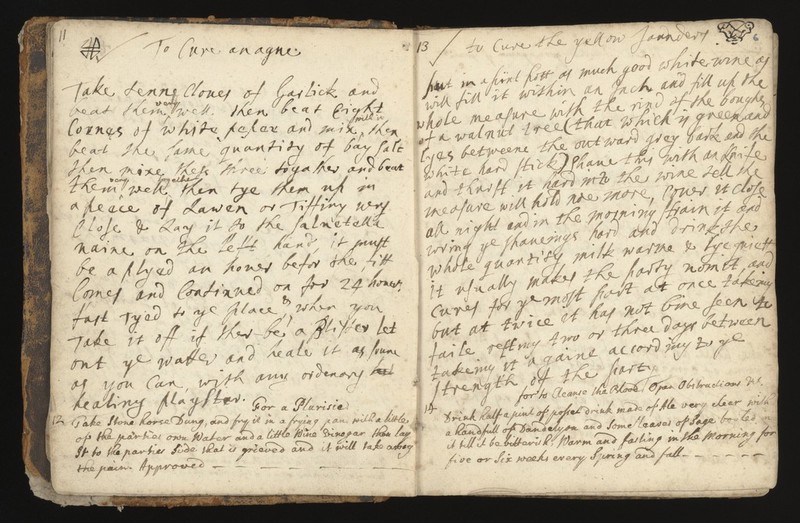 11
To Cure an ague
Take Tenne Cloves of Garlick and
beat them very well. then beat Eight
Cornes of white peper and mix, then
beat the same quantity of bay salt
then mixe thes three togather and beat
them very well then tye them up in
a peece of Lawen or Tiffiny very
Close & Lay it to the
vaine on the Left hand, it must
be aplyed an hower befor the fitt
Comes and Continued on for 24 howers
fast Tyed to ye place, when you
Take it off if ther be a Blister let
out ye watter and heale it as soune
as you Can with any ordenary
healing playster.
For a Plurisie
12 Take Stone horse Dung, and fry it in a frying pan with a little
of the parties own Water and a little Wine Vinegar then lay
It to the parties Side that is greeved and it will take away
the pain Approved
13
6
to Cure the yellow Jaunders
put in a pint pott as much good white wine as
will fill it within an Inch and fill up the
whole measure with the rind of the boughs
of a walnut tree (that which is green and
lyes betweene the outward grey bark and the
white hard stick) shave this with an knife
and thrust it hard into the wine tell the
measure will hold noe more, Cover it Close
all night and in the morning strain it and
wring ye shaveings hard and drink the
whole quantity milk warme & lye
it usually makes the party vomitt, and
Cures for ye most part at once takeing
but at twice it has not bine seen to
faile resting two or three days between
takeing it againe according to ye
strength of the party
for to Cleanse the Blood, Open Obstructions &c.
14 Drink half a pint of posset drink made of Ale very clear with
a handfull of Dandelyon and Some leaves of Sage boiled in
it till it be bitterish. Warm and fasting in the Morning for
five or Six weeks every Spring and fall